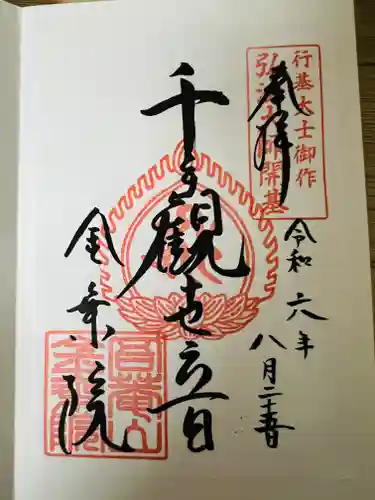 行基大士御作
弘法大師開基
奉拝
令和六年
八月二十五日
千手觀世音
金乗院